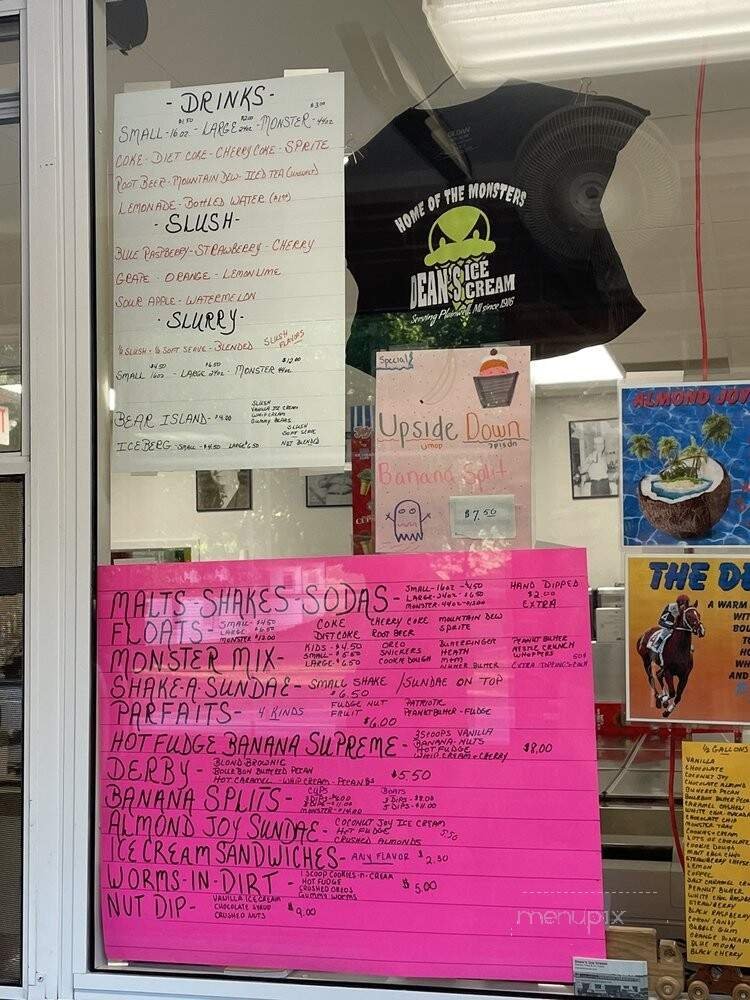 - DRINKS -
$1.50 $2.00 $3.00
SMALL-16oz - LARGE 24oz - MONSTER - 44oz
COKE - DIET COKE - CHERRY COKE - SPRITE
ROOT BEER - MOUNTAIN DEW - ICED TEA
LEMONADE - BOTTLED WATER
- SLUSH -
BLUE RASPBERRY - STRAWBERRY - CHERRY
GRAPE - ORANGE - LEMON LIME
SOUR APPLE - WATERMELON
- SLURRY -
½ SLUSH - ½ SOFT SERVE - BLENDED SLUSH FLAVORS
$4.50 $6.50 $12.00
SMALL 16oz - LARGE 24oz - MONSTER 44oz
BEAR ISLAND - $4.00
SLUSH
VANILLA ICE CREAM
WHIP CREAM
GUMMY BEARS
ICEBERG SMALL - $4.50 LARGE $6.50
SLUSH
SOFT SERVE
NOT BLENDED
HOME OF THE MONSTERS
DEAN'S ICE CREAM
Serving Plainwell, MI since 1976
Special
Upside Down
umop apisdn
Banana Split
$7.50
ALMOND JOY
THE D
A WARM
WIT
BOU
HO
WH
AND
MALTS-SHAKES-SODAS -
SMALL-16oz - $4.50
LARGE-24oz - $6.50
MONSTER-44oz - $12.00
HAND DIPPED
$2.00
EXTRA
FLOATS -
SMALL - $4.50
LARGE - $6.50
MONSTER $12.00
COKE CHERRY COKE MOUNTAIN DEW
DIET COKE ROOT BEER SPRITE
MONSTER MIX -
KIDS - $4.50
SMALL - $5.50
LARGE - $6.50
OREO BUTTERFINGER PEANUT BUTTER
SNICKERS HEATH NESTLE CRUNCH
COOKIE DOUGH M+M WHOPPERS
NUTTER BUTTER EXTRA TOPPINGS 50¢ EACH
SHAKE-A-SUNDAE - SMALL SHAKE / SUNDAE ON TOP
$6.50
PARFAITS - 4 KINDS
FUDGE NUT PATRIOTIC
FRUIT PEANUT BUTTER - FUDGE
$6.00
HOT FUDGE BANANA SUPREME -
3 SCOOPS VANILLA
BANANA - NUTS
HOT FUDGE
WHIP CREAM + CHERRY
$8.00
DERBY -
BLOND BROWNIE
BOURBON BUTTERED PECAN
HOT CARAMEL - WHIP CREAM - PECANS
$5.50
BANANA SPLITS -
CUPS
MONSTER - $14.00
BOATS
ALMOND JOY SUNDAE -
COCONUT JOY ICE CREAM
HOT FUDGE
CRUSHED ALMONDS
5.50
ICE CREAM SANDWICHES - ANY FLAVOR $2.50
WORMS-IN-DIRT -
1 SCOOP COOKIES-N-CREAM
HOT FUDGE
CRUSHED OREOS
GUMMY WORMS
$5.00
NUT DIP -
VANILLA ICE CREAM
CHOCOLATE SYRUP
CRUSHED NUTS
$4.00
½ GALLONS
VANILLA
CHOCOLATE
COCONUT JOY
CHOCOLATE ALMOND
BUTTERED PECAN
BOURBON BUTTER PECAN
CARAMEL CASHEW
CHOCOLATE CHIP
MONSTER TRAX
COOKIES + CREAM
LOTS OF CHOCOLATE
COOKIE DOUGH
MINT CHOC CHIP
STRAWBERRY CHEESE
LEMON
COFFEE
SALT CARAMEL
PEANUT BUTTER
WHITE CHOC RASPBERRY
STRAWBERRY
BLACK RASPBERRY
COTTON CANDY
BUBBLE GUM
ORANGE PINEAPPLE
BLUE MOON
BLACK CHERRY
menupix